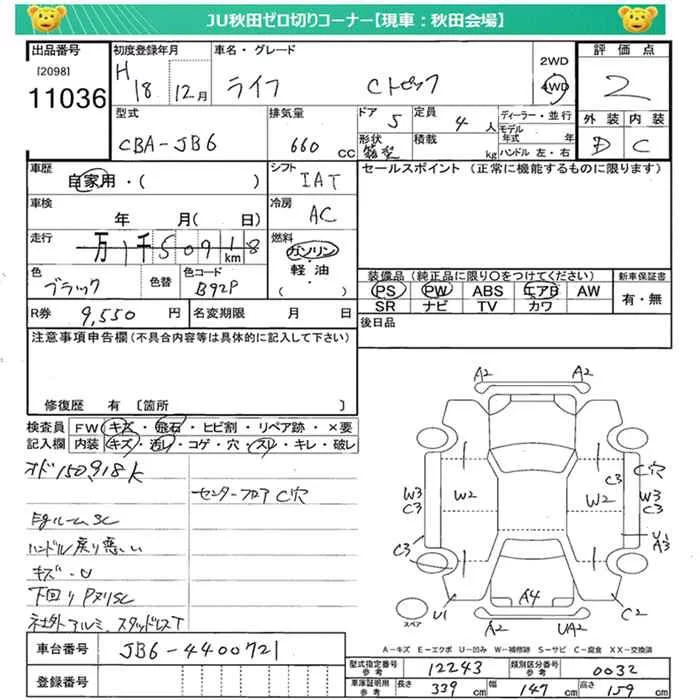 JU秋田ゼロ切りコーナー【現車：秋田会場】
出品番号 初度登録年月 車名・グレード 2WD 評価点
[2098] H 18 12月 ライフ Cトピック 4WD 2
11036
型式 排気量 ドア 5 定員 4 人 ディーラー・並行 外装 内装
CBA-JB6 660 CC 形状 箱型 積載 kg モデル年式 年 D C
ハンドル 左・右
車歴 自家用・( ) シフト IAT セールスポイント (正常に機能するものに限ります)
車検 年 月( 日) 冷房 AC
走行 万 千 50918 km 燃料 ガソリン
軽・油
・( )
色 ブラック 色替 色コード B92P
装備品 (純正品に限り○をつけてください) 新車保証書
PS PW ABS エアB AW 有・無
SR ナビ TV カワ
R券 9,550 円 名変期限 月 日 後日品
注意事項申告欄(不具合内容等は具体的に記入して下さい)
修復歴 有 〔箇所 〕
検査員 FW キズ・飛石・ヒビ割・リペア跡・×要
記入欄 内装 キズ・汚レ・コゲ・穴・スリ・キレ・破レ
オド150,918K
センターフロア C穴
Egルーム SC
ハンドル戻り悪い
キズ・U
下回りPヌリSC
社外アルミ、スタッドレスT
A2 A2
C3 C穴
W3 C3 W2 W2 W3 C3
U A3
C3
U1 A4 C2
スペア A2 UA2
A－キズ E－エクボ U－凹み W－補修跡 S－サビ C－腐食 XX－交換済
車台番号 JB6-4400721
登録番号
型式指定番号 参考 12243 類別区分番号 参考 0032
車庫証明用 参考 長さ 339 cm 幅 147 cm 高さ 159 cm